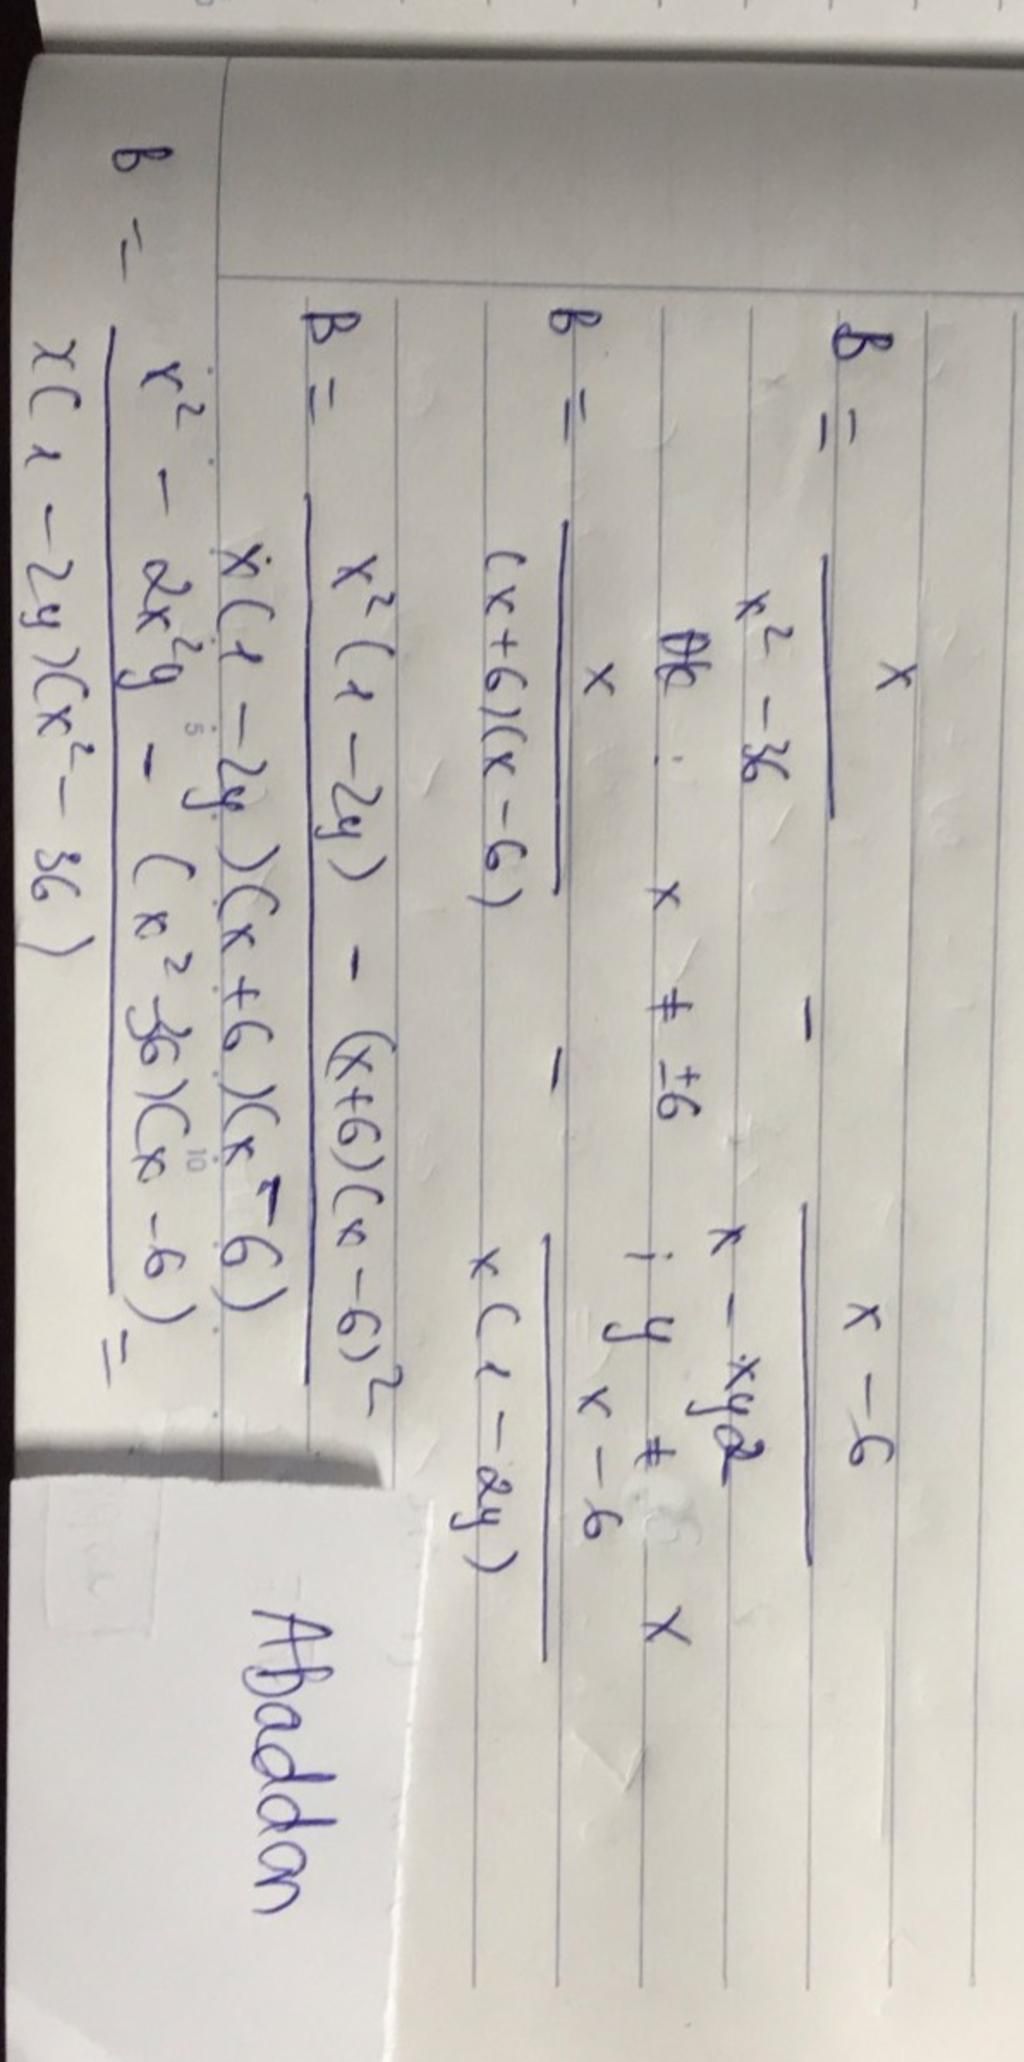 B = x / x² - 36 - x - 6 / x - xy2
ĐK : x ≠ ±6 ; y ≠ x
B = x / (x+6)(x-6) - x - 6 / x(1 - 2y)
B = x²(1 - 2y) - (x+6)(x-6)² / x(1 - 2y)(x+6)(x-6)
B = x² - 2x²y - (x² - 36)(x - 6) / x(1 - 2y)(x² - 36) =
Abaddon
5
10